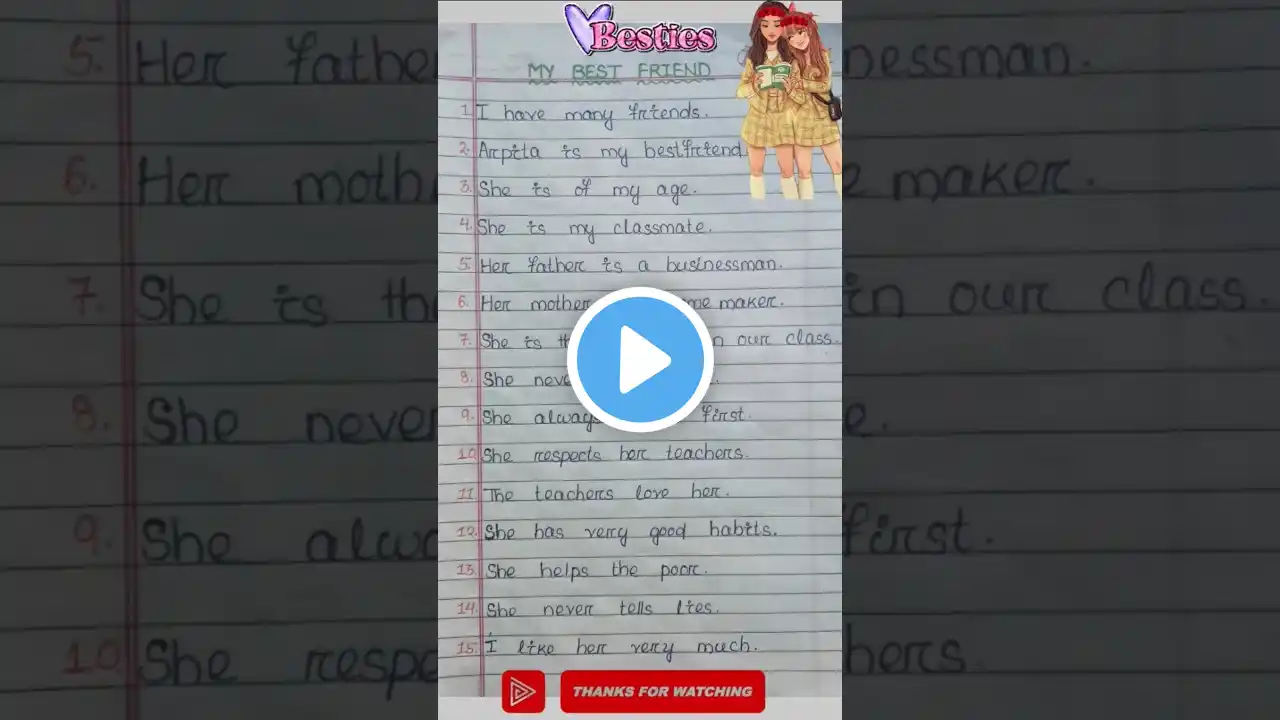 Besties
MY BEST FRIEND
1. I have many friends.
2. Arpita is my bestfriend.
3. She is of my age.
4. She is my classmate.
5. Her father is a businessman.
6. Her mother maker.
7. She is in our class.
8. She never
9. She always first.
10. She respects her teachers.
11. The teachers love her.
12. She has very good habits.
13. She helps the poor.
14. She never tells lies.
15. I like her very much.
THANKS FOR WATCHING